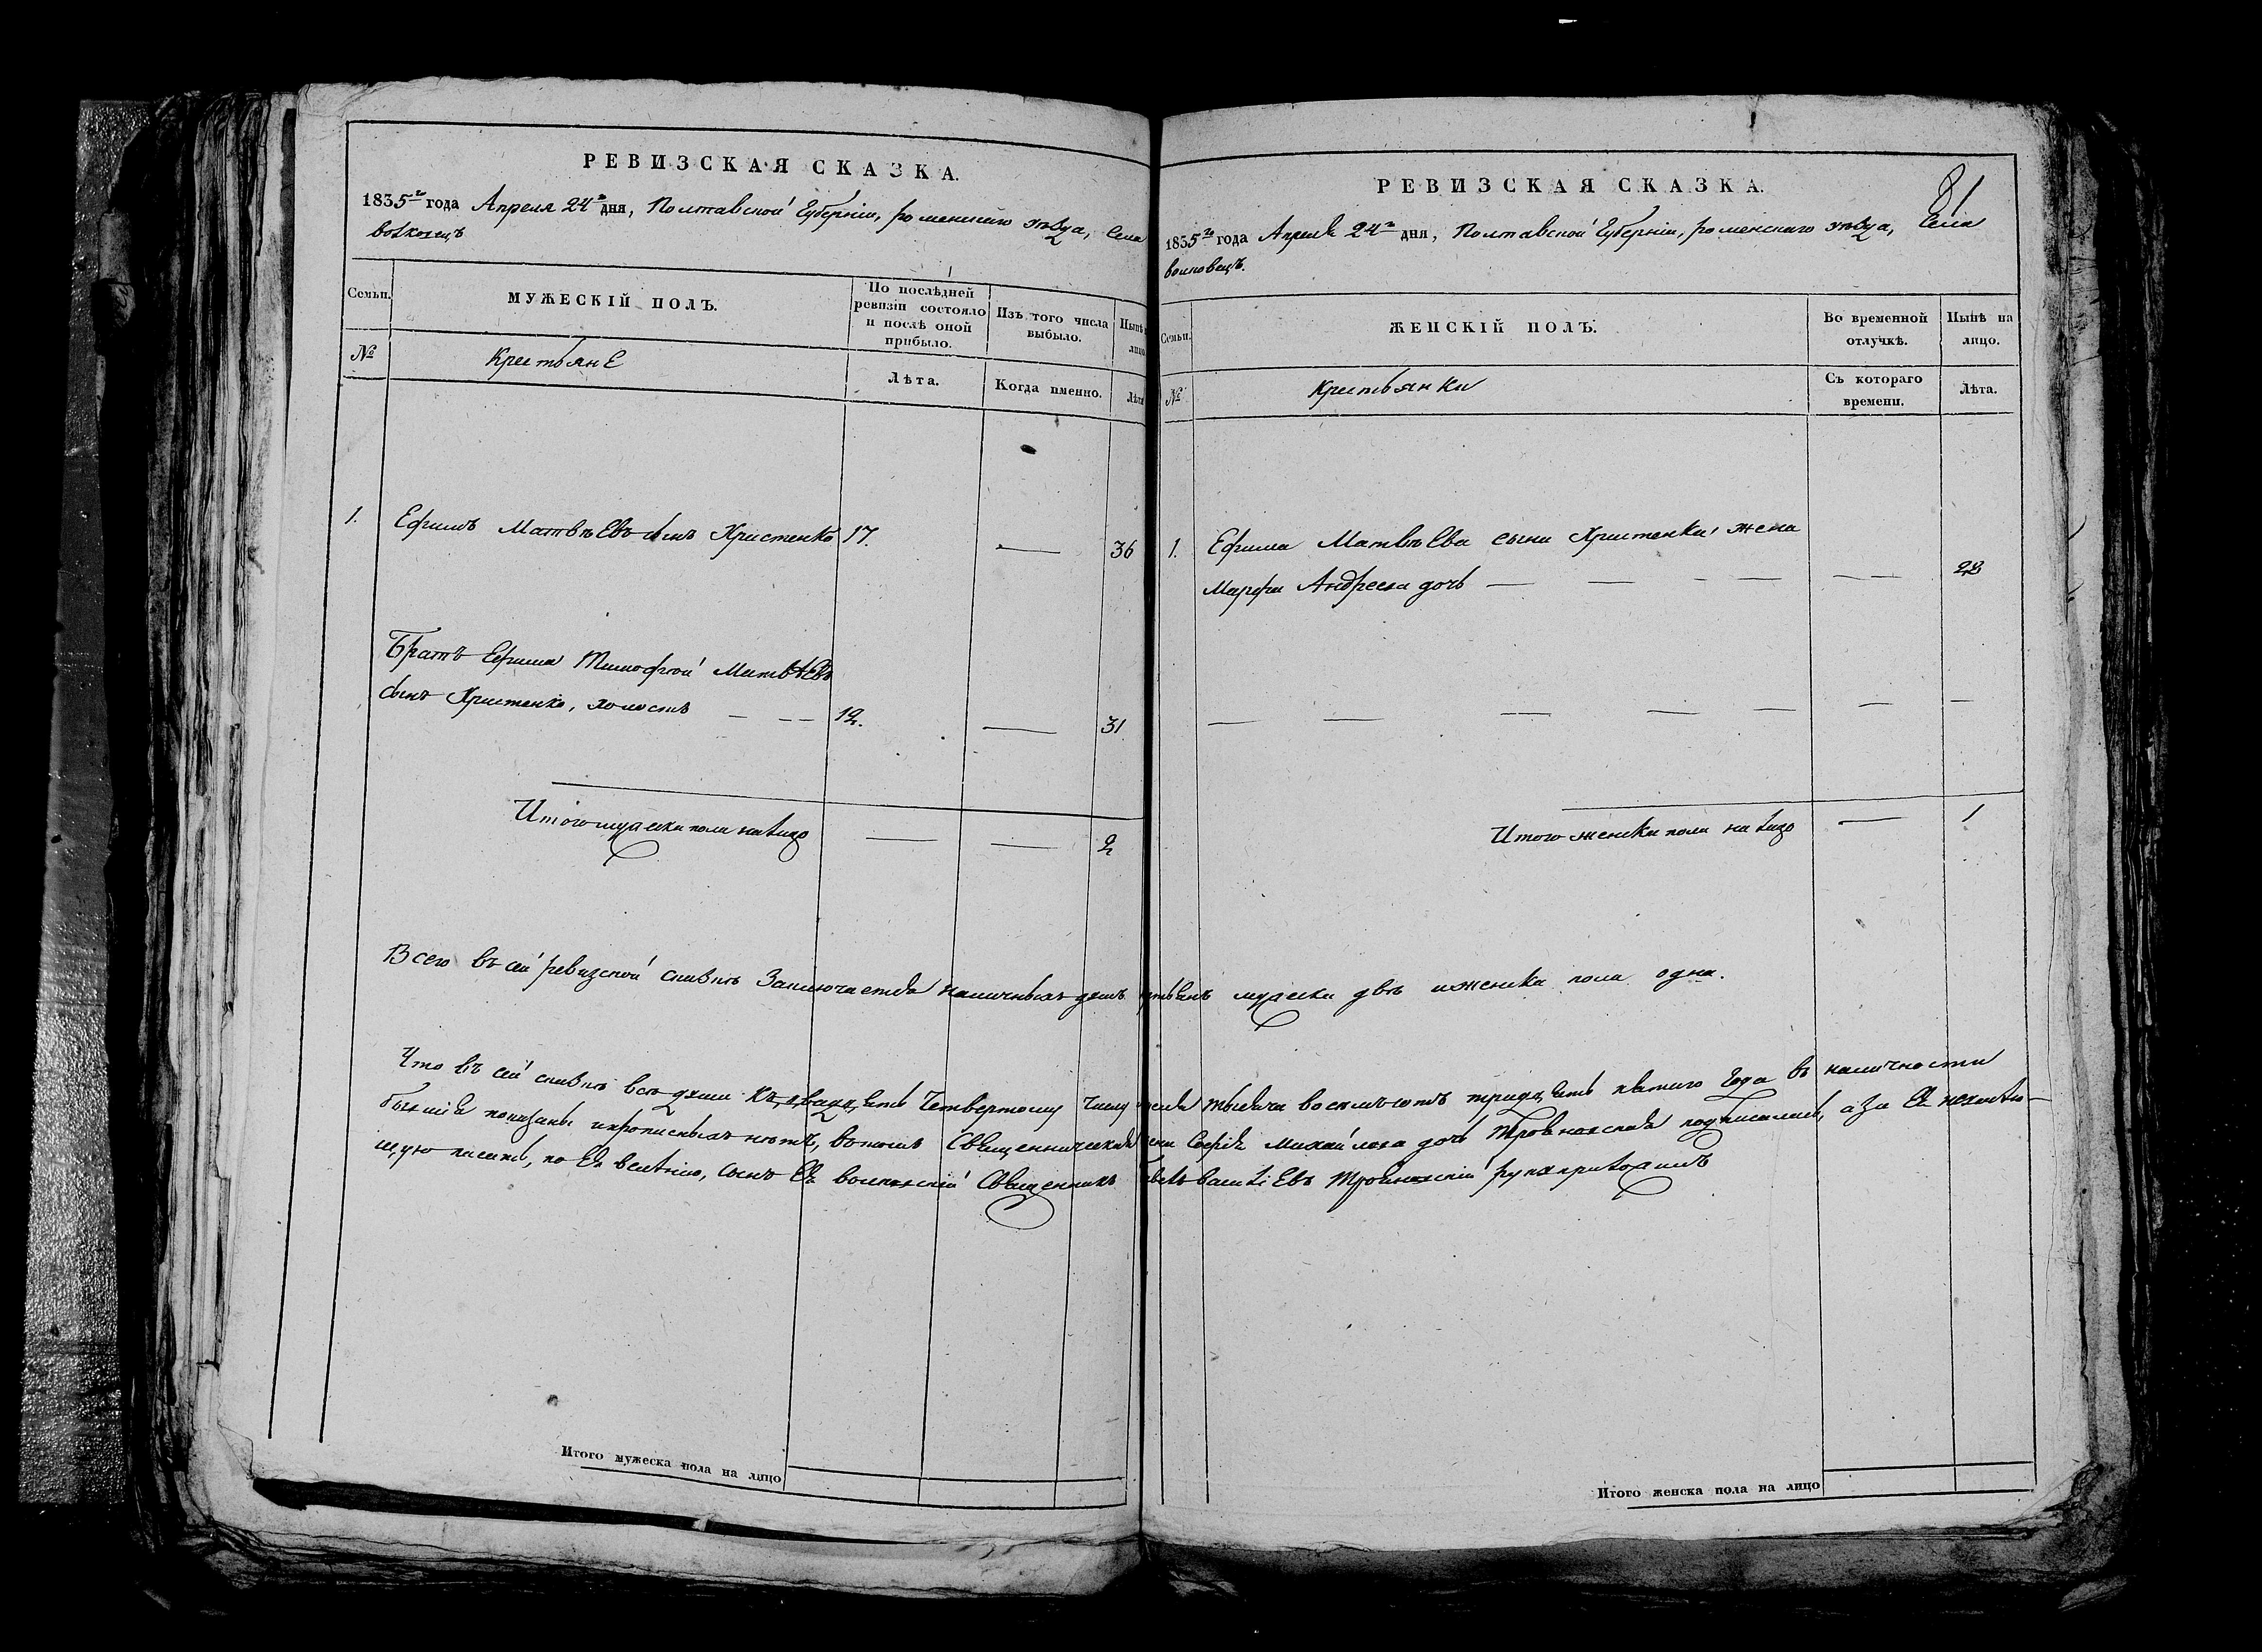 РЕВИЗСКАЯ СКАЗКА.
1835го года Апреля 24го дня, Полтавской Губерніи, роменского уѣзда, Села
волковецъ
Семьи. МУЖЕСКІЙ ПОЛЪ. По послѣдней ревизіи состояло и послѣ оной прибыло. Изъ того числа выбыло. Нынѣ на лицо.
№ Крестьяне Лѣта. Когда именно. Лѣта
1. Ефимъ Матвѣевъ сынъ Христенко 17. — 36
Братъ Ефима Тимофѣй Матвѣевъ
сынъ Христенко, холостъ — — — 12. — 31
Итого мужеска пола налицо — — 2
Всего въ сей ревизской сказкѣ Заключается наличныхъ душъ
Что въ сей сказкѣ всѣ души къ двадцать Четвертому Числу
бывшіе показаны и прописныхъ нѣтъ, вътомъ Священническая
щую писать, по Ея велѣнію, сынъ Ея волковскій Священникъ
Итого мужеска пола на лицо
81
РЕВИЗСКАЯ СКАЗКА.
1835го года Апреля 24го дня, Полтавской Губерніи, роменскаго уѣзда, Села
волковецъ.
Семьи. ЖЕНСКІЙ ПОЛЪ. Во временной отлучкѣ. Нынѣ на лицо.
№ Крестьянки Съ котораго времени. Лѣта.
1. Ефима Матвѣева сына Христенка жена
Марфа Андреева дочь — — — — — — 28
— — — — — — —
Итого женска пола на лицо — 1
мужеска двѣ и женска пола одна.
тысяча восемьсотъ тридцать пятого Года въ наличности
Софія Михайлова дочь подписалась, а за Ея неумѣю-
василіевъ руку приложилъ
Итого женска пола на лицо